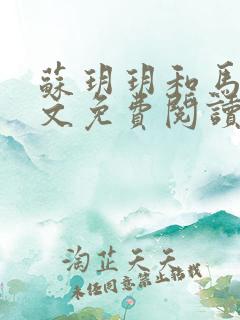 蘇玥玥和馬
文免費閱讀
淘芷天天
未经同意禁止转载